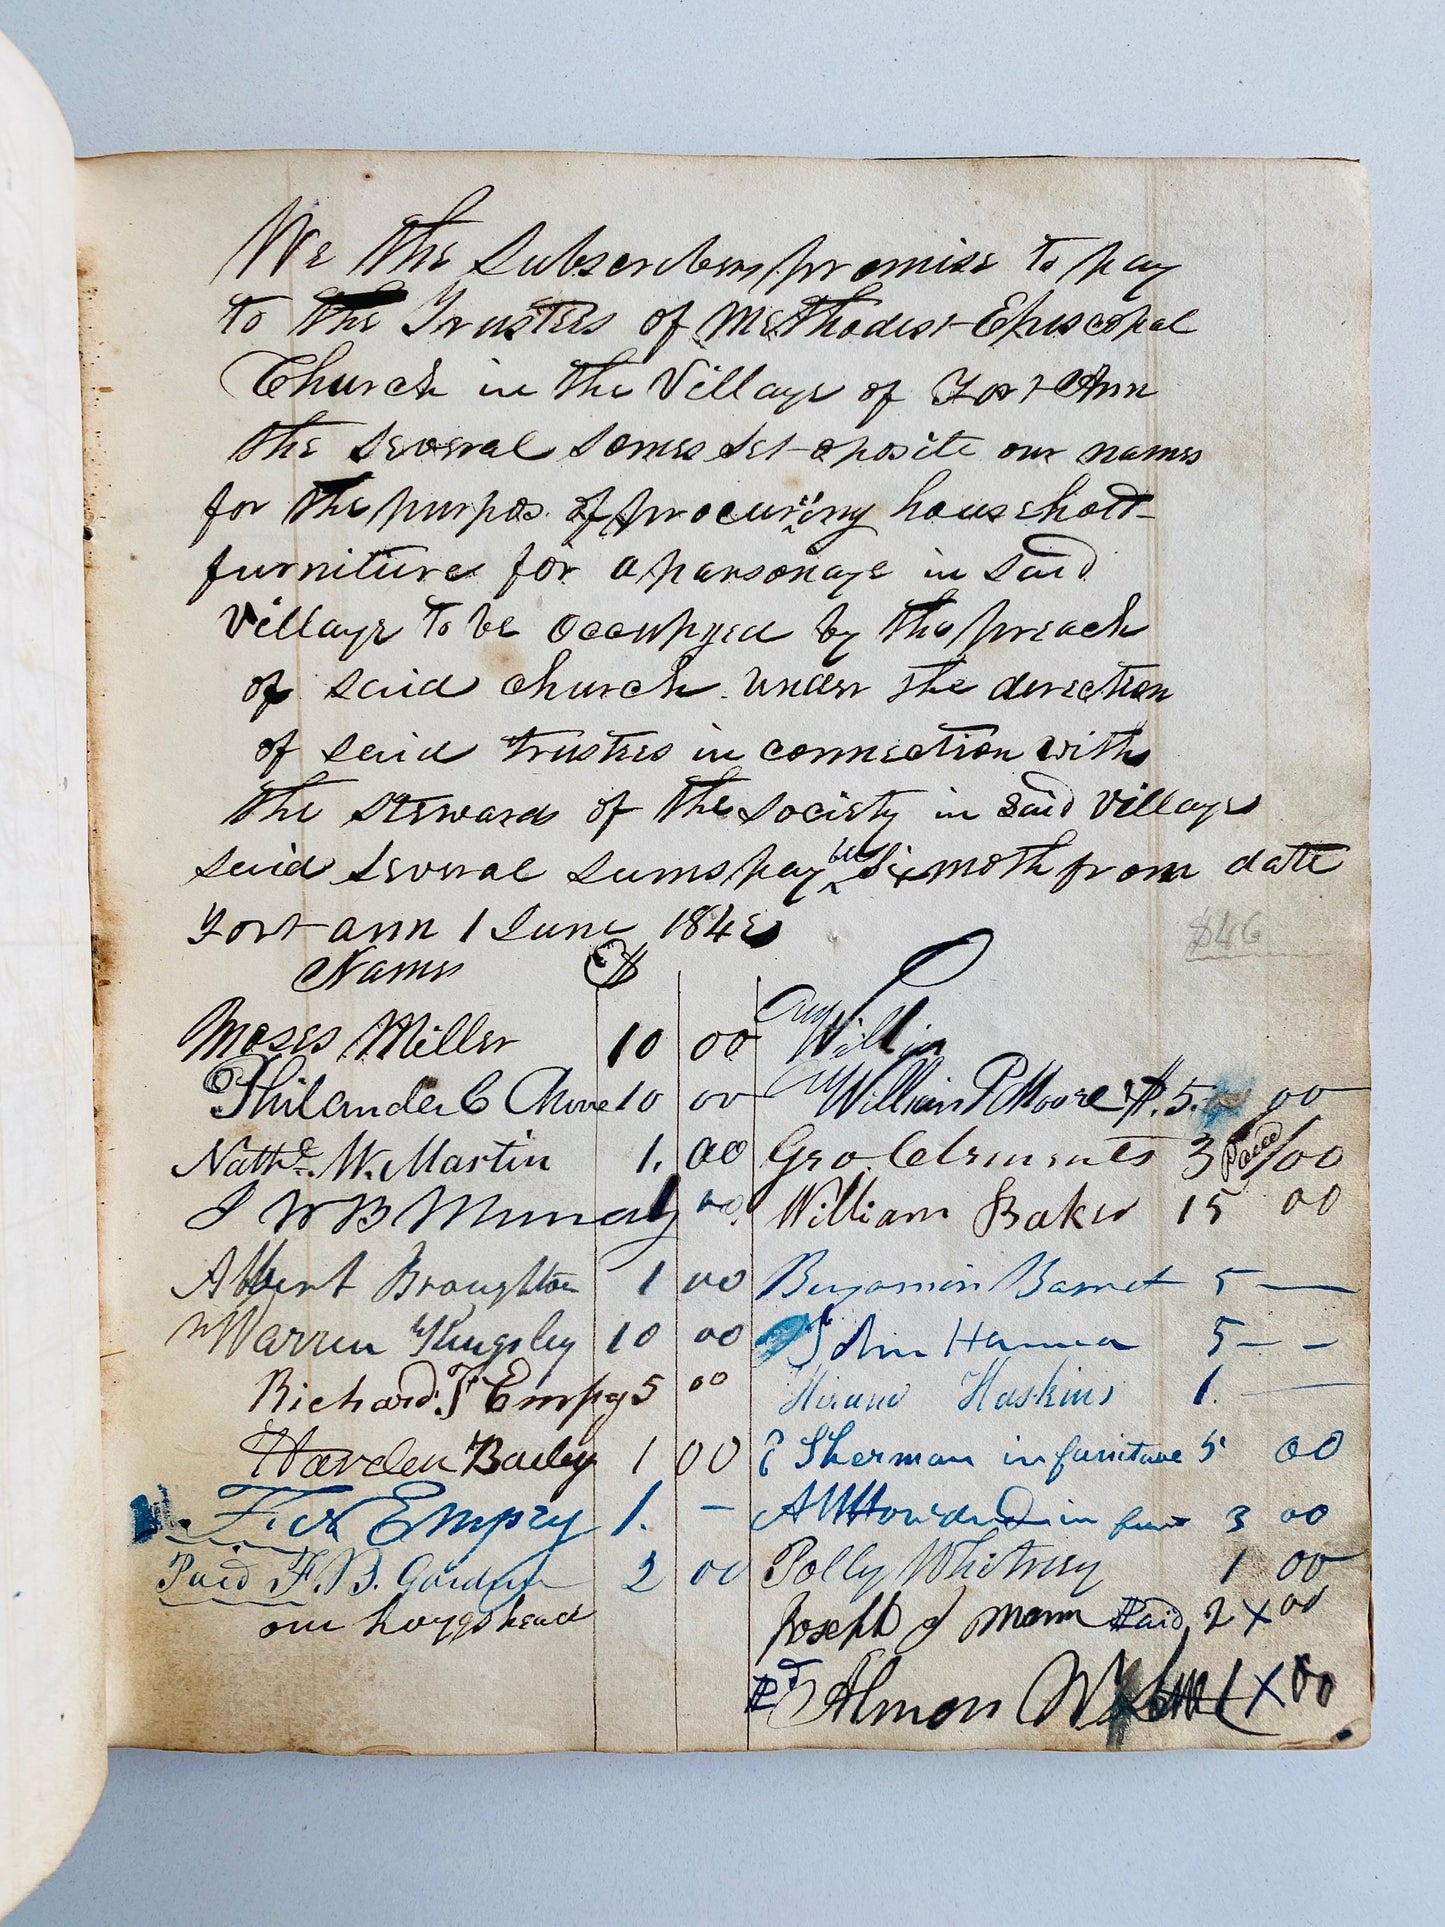 We the Subscribers promise to pay
to the Trustees of Methodist Episcopal
Church in the Village of Fort Ann
the several somes set oposite our names
for the purpos of procuring household
furniture for a parsonage in said
Village to be occupyed by the preach
of said church under the derection
of said trustees in connection with
the stewards of the society in said Village
said several sums payble Six moth from date
Fort ann 1 June 184
$46
Names $
Moses Miller 10 00
Philander C 10 00
Nathl. W. Martin 1. 00
J W B Murray 1 00
Albert Broughton 1 00
Warren Kingsley 10 00
Richard F Empy 5 00
Harden Bailey 1 00
Empey 1. -
Paid F. B. 2 00
our hoggshead
Willia
William P Moore $. 5. 00
Geo Clements 3 Paid 00
William Baker 15 00
Benjamin Barret 5 —
John Hanna 5 - -
Hiram Haskins 1. —
Sherman in furniture 5 00
A in furt 3 00
Polly Whitney 1 00
Joseph J Mann Paid 2 X 00
Pd Almon 1 X 00